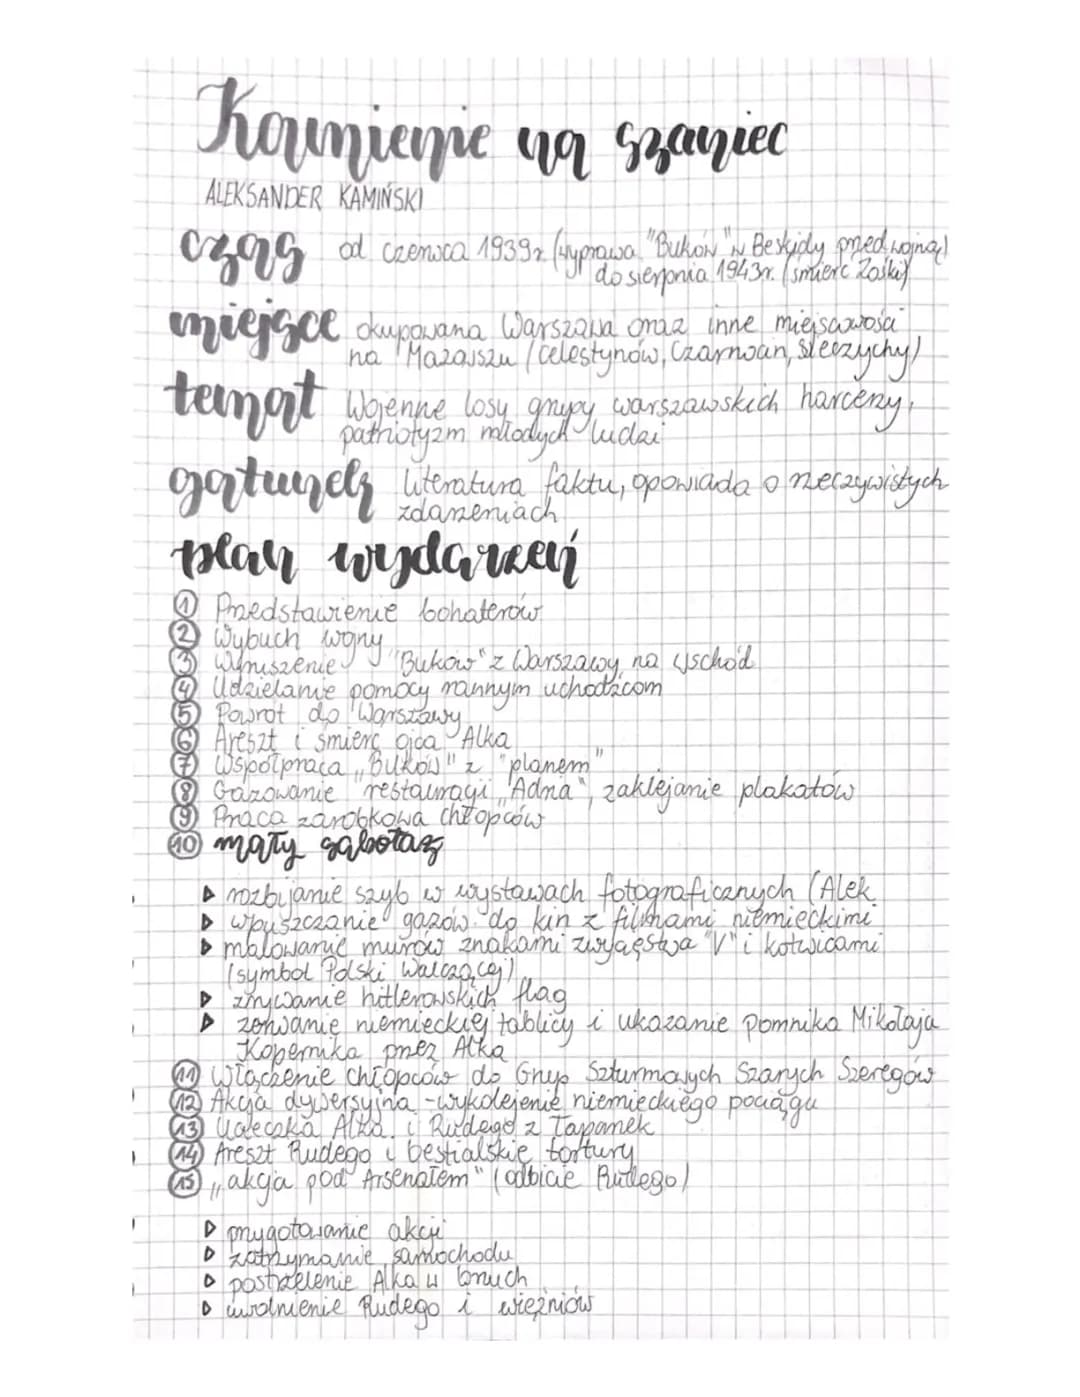 Kamienie na szaniec
ALEKSANDER KAMIŃSKI
czas od czerwca 1939r (wyprawa "Buków" w Beskidy przed wojną)
do sierpnia 1943r. (śmierć Zośki)
miejsce okupowana Warszawa oraz inne miejscowości
na Mazowszu (Celestynów, Czarnocin, Sieczychy)
temat Wojenne losy grupy warszawskich harcerzy,
patriotyzm młodych ludzi
gatunek literatura faktu, opowiada o rzeczywistych
zdarzeniach
plan wydarzeń
1 Przedstawienie bohaterów
2 Wybuch wojny
3 Wyruszenie "Buków" z Warszawy na wschód
4 Udzielanie pomocy rannym uchodźcom
5 Powrót do Warszawy
6 Areszt i śmierć ojca Alka
7 Współpraca „Buków" z "planem"
8 Gazowanie restauracji „Adria", zaklejanie plakatów
9 Praca zarobkowa chłopców
10 mały sabotaż
▷ rozbijanie szyb w wystawach fotograficznych (Alek
▷ wpuszczanie gazów do kin z filmami niemieckimi
▷ malowanie murów znakami zwycięstwa "V" i kotwicami
(symbol Polski Walczącej)
▷ zrywanie hitlerowskich flag
▷ zerwanie niemieckiej tablicy i ukazanie pomnika Mikołaja
Kopernika przez Alka
11 Włączenie chłopców do Grup Szturmowych Szarych Szeregów
12 Akcja dywersyjna - wykolejenie niemieckiego pociągu
13 Ucieczka Alka i Rudego z łapanek
14 Areszt Rudego i bestialskie tortury
15 „akcja pod Arsenałem" (odbicie Rudego)
▷ przygotowanie akcji
▷ zatrzymanie samochodu
▷ postrzelenie Alka w brzuch
▷ uwolnienie Rudego i więźniów